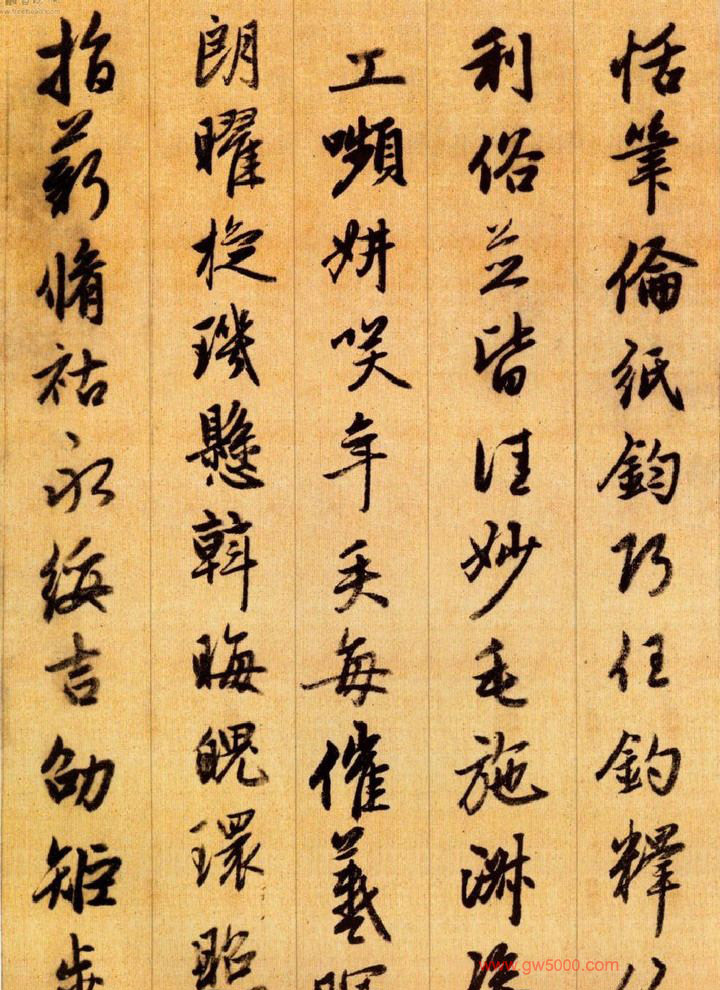 恬筆倫紙鈞巧任釣釋紛
利俗並皆佳妙毛施淑姿
工嚬妍咲年矢每催羲暉
朗曜旋璣懸斡晦魄環照
指薪脩祜永綏吉劭矩步
www.gw5000.com